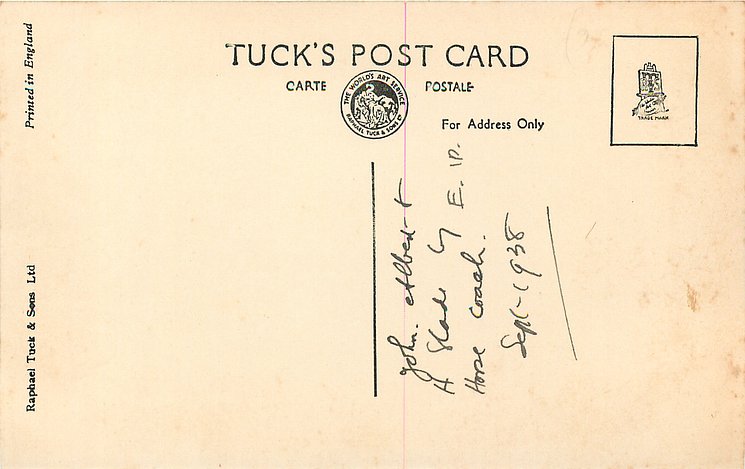 TUCK'S POST CARD
CARTE POSTALE
THE WORLD'S ART SERVICE
RAPHAEL TUCK & SONS LTD
For Address Only
TRADE MARK
Printed in England
Raphael Tuck & Sons Ltd
John. Albert
H Slade by E. P.
Horse coach.
Sept-1938